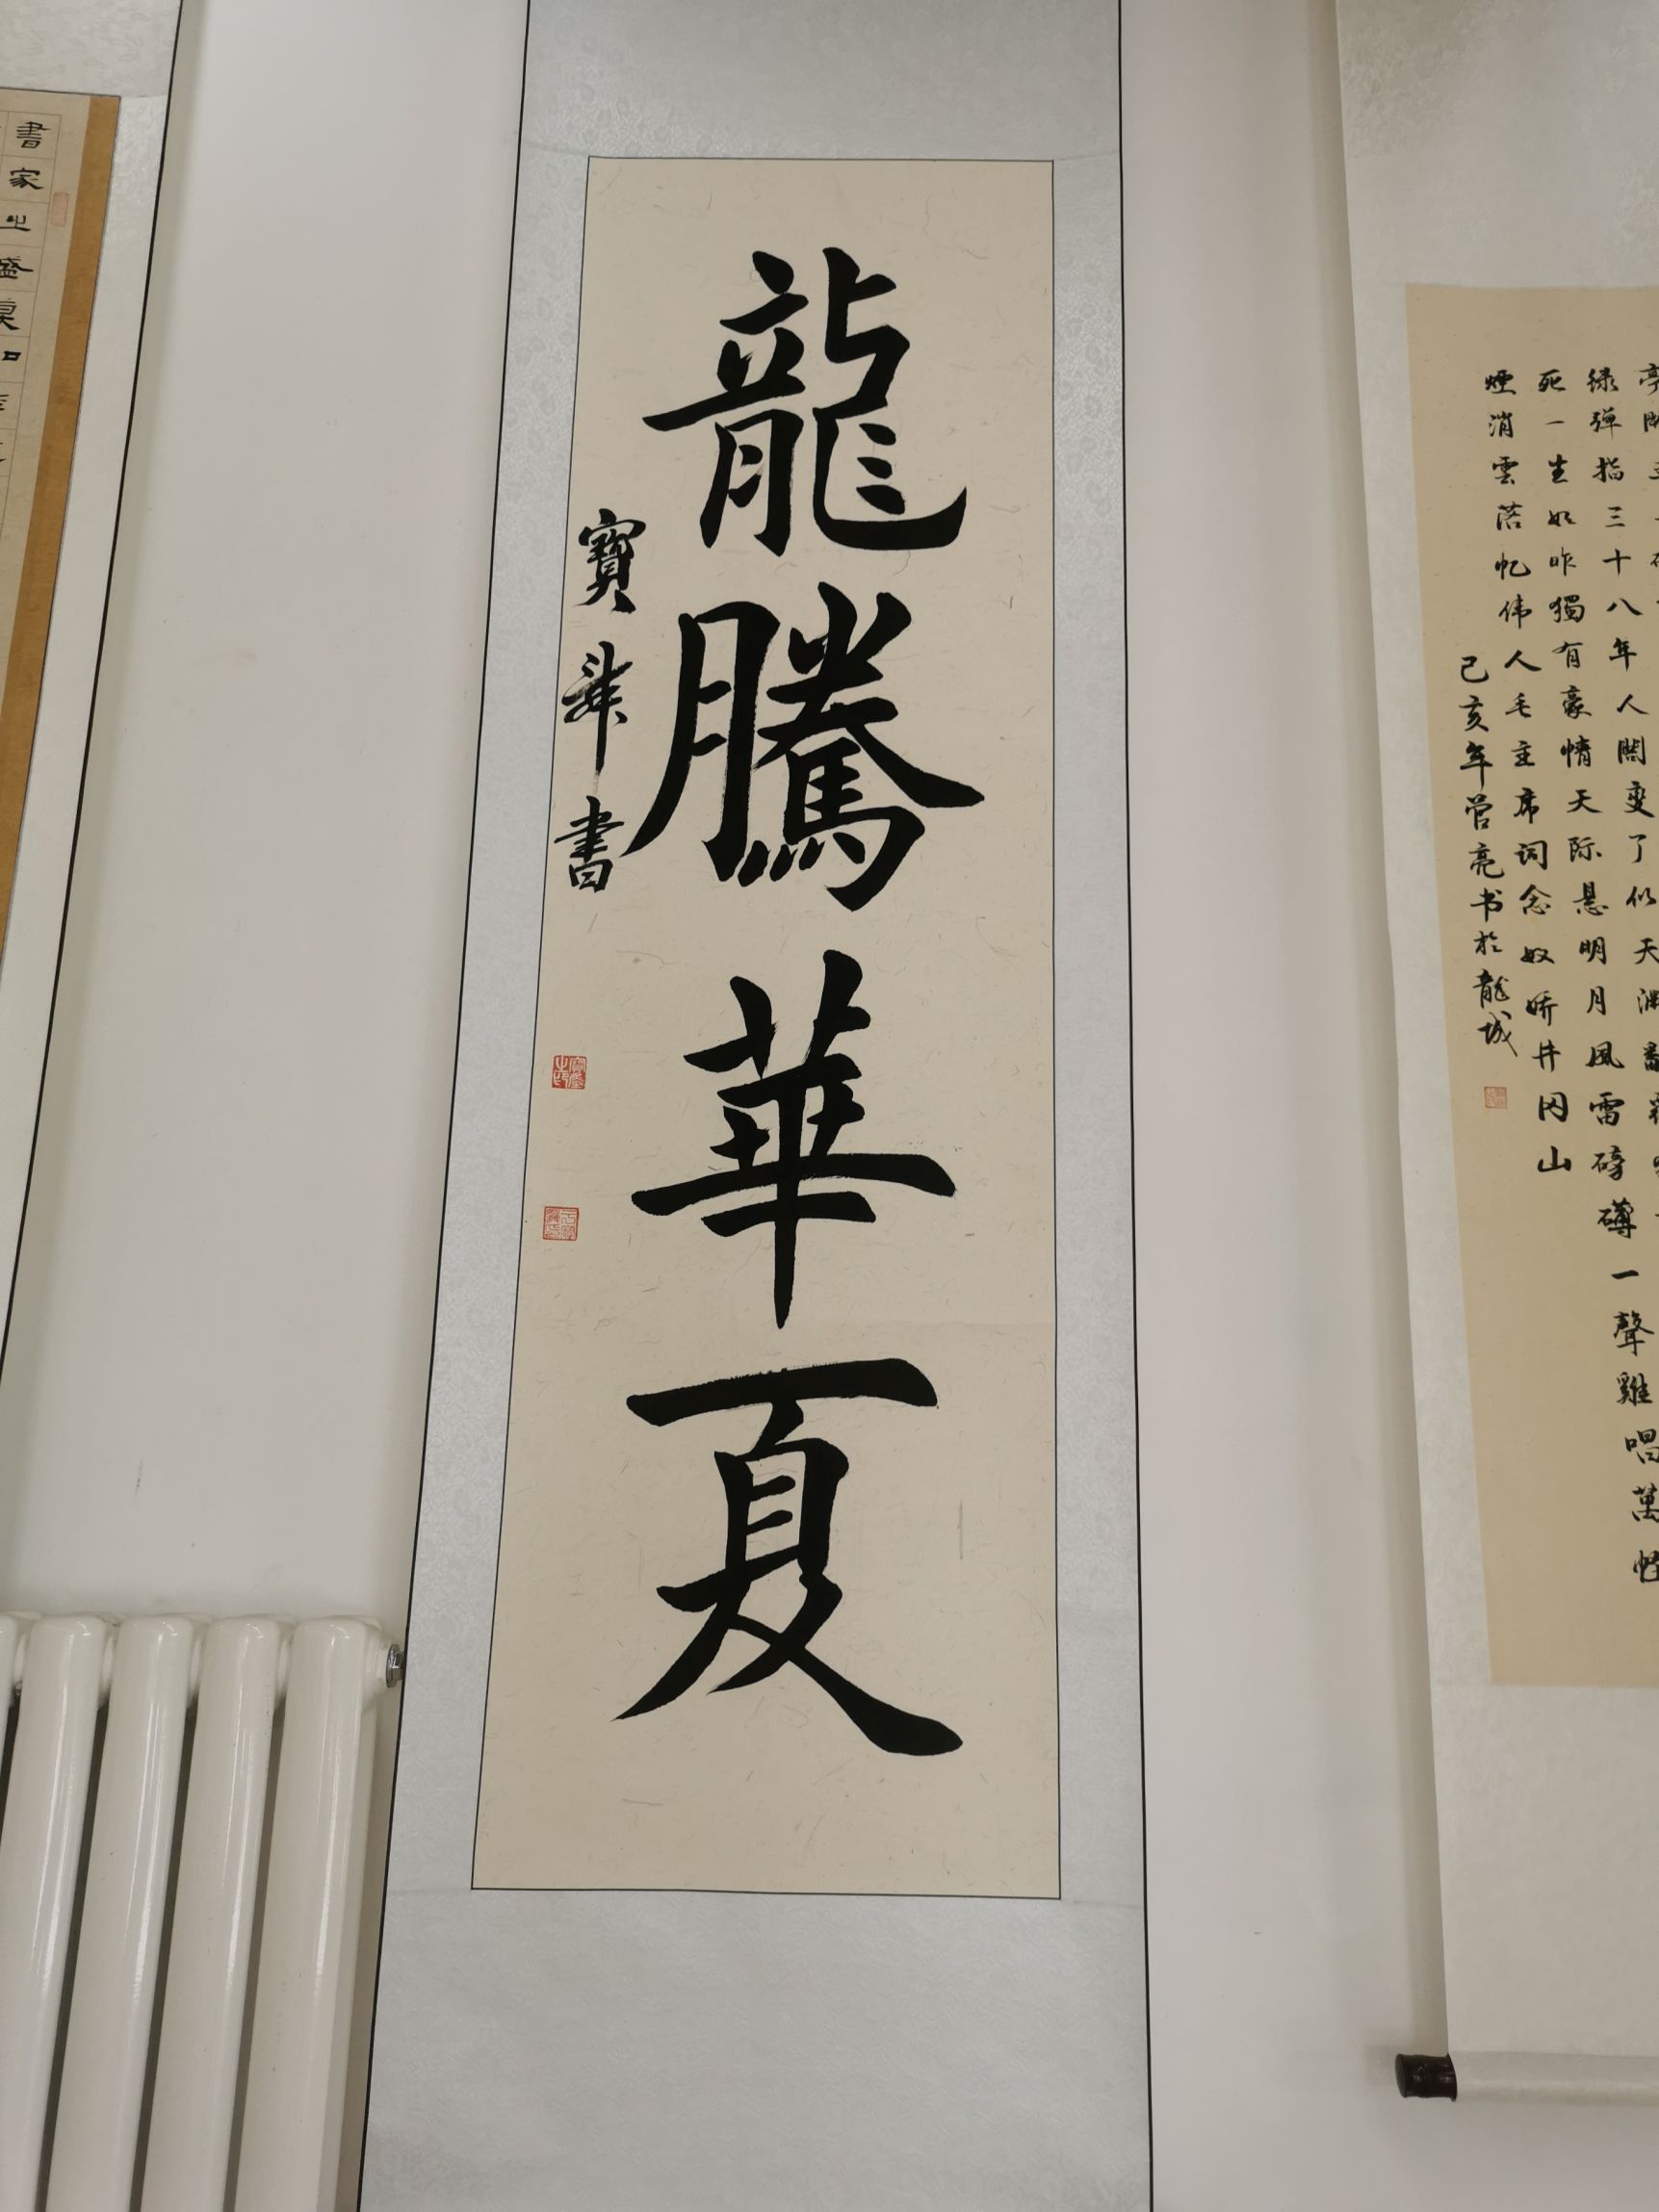 龍騰華夏
寶 書
绿弹指三十八年人閒变了似天渊翻
死一生如昨獨有豪情天际悬明月風雷磅礴一聲雞唱萬怪
煙消雲落忆伟人毛主席词念奴娇井冈山
己亥年管亮书於龍城
書家之盛莫